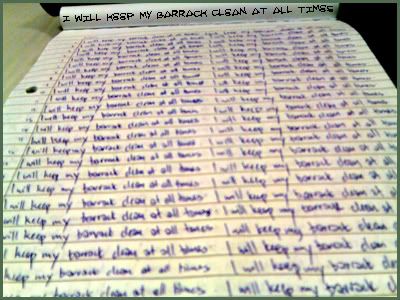 I WILL KEEP MY BARRACK CLEAN AT ALL TIMES
I will keep my barrack clean at all times I will keep my barrack clean at all times
I will keep my barrack clean at all times I will keep my barrack clean at all times
I will keep my barrack clean at all times I will keep my barrack clean at all times
I will keep my barrack clean at all times I will keep my barrack clean at all times
I will keep my barrack clean at all times I will keep my barrack clean at all times
I will keep my barrack clean at all times I will keep my barrack clean at all times
I will keep my barrack clean at all times I will keep my barrack clean at all times
I will keep my barrack clean at all times I will keep my barrack clean at all times
I will keep my barrack clean at all times I will keep my barrack clean at all
I will keep my barrack clean at all times I will keep my barrack clean at all
I will keep my barrack clean at all times I will keep my barrack clean at all
I will keep my barrack clean at all times I will keep my barrack clean at all
I will keep my barrack clean at all times I will keep my barrack clean at all
will keep my barrack clean at all times I will keep my barrack clean at
will keep my barrack clean at all times I will keep my barrack clean at
will keep my barrack clean at all times I will keep my barrack clean
keep my barrack clean at all times I will keep my barrack clean
my barrack clean at all times I will keep my barrack